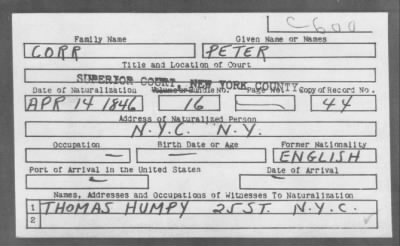 C-600
Family Name Given Name or Names
CORR PETER
Title and Location of Court
SUPERIOR COURT, NEW YORK COUNTY
Date of Naturalization Volume or Bundle No. Page No. Copy of Record No.
APR 14 1846 16 — 44
Address of Naturalized Person
N.Y.C. N.Y.
Occupation Birth Date or Age Former Nationality
— — ENGLISH
Port of Arrival in the United States Date of Arrival
— —
Names, Addresses and Occupations of Witnesses To Naturalization
1 THOMAS HUMPY 25 ST. N.Y.C.
2